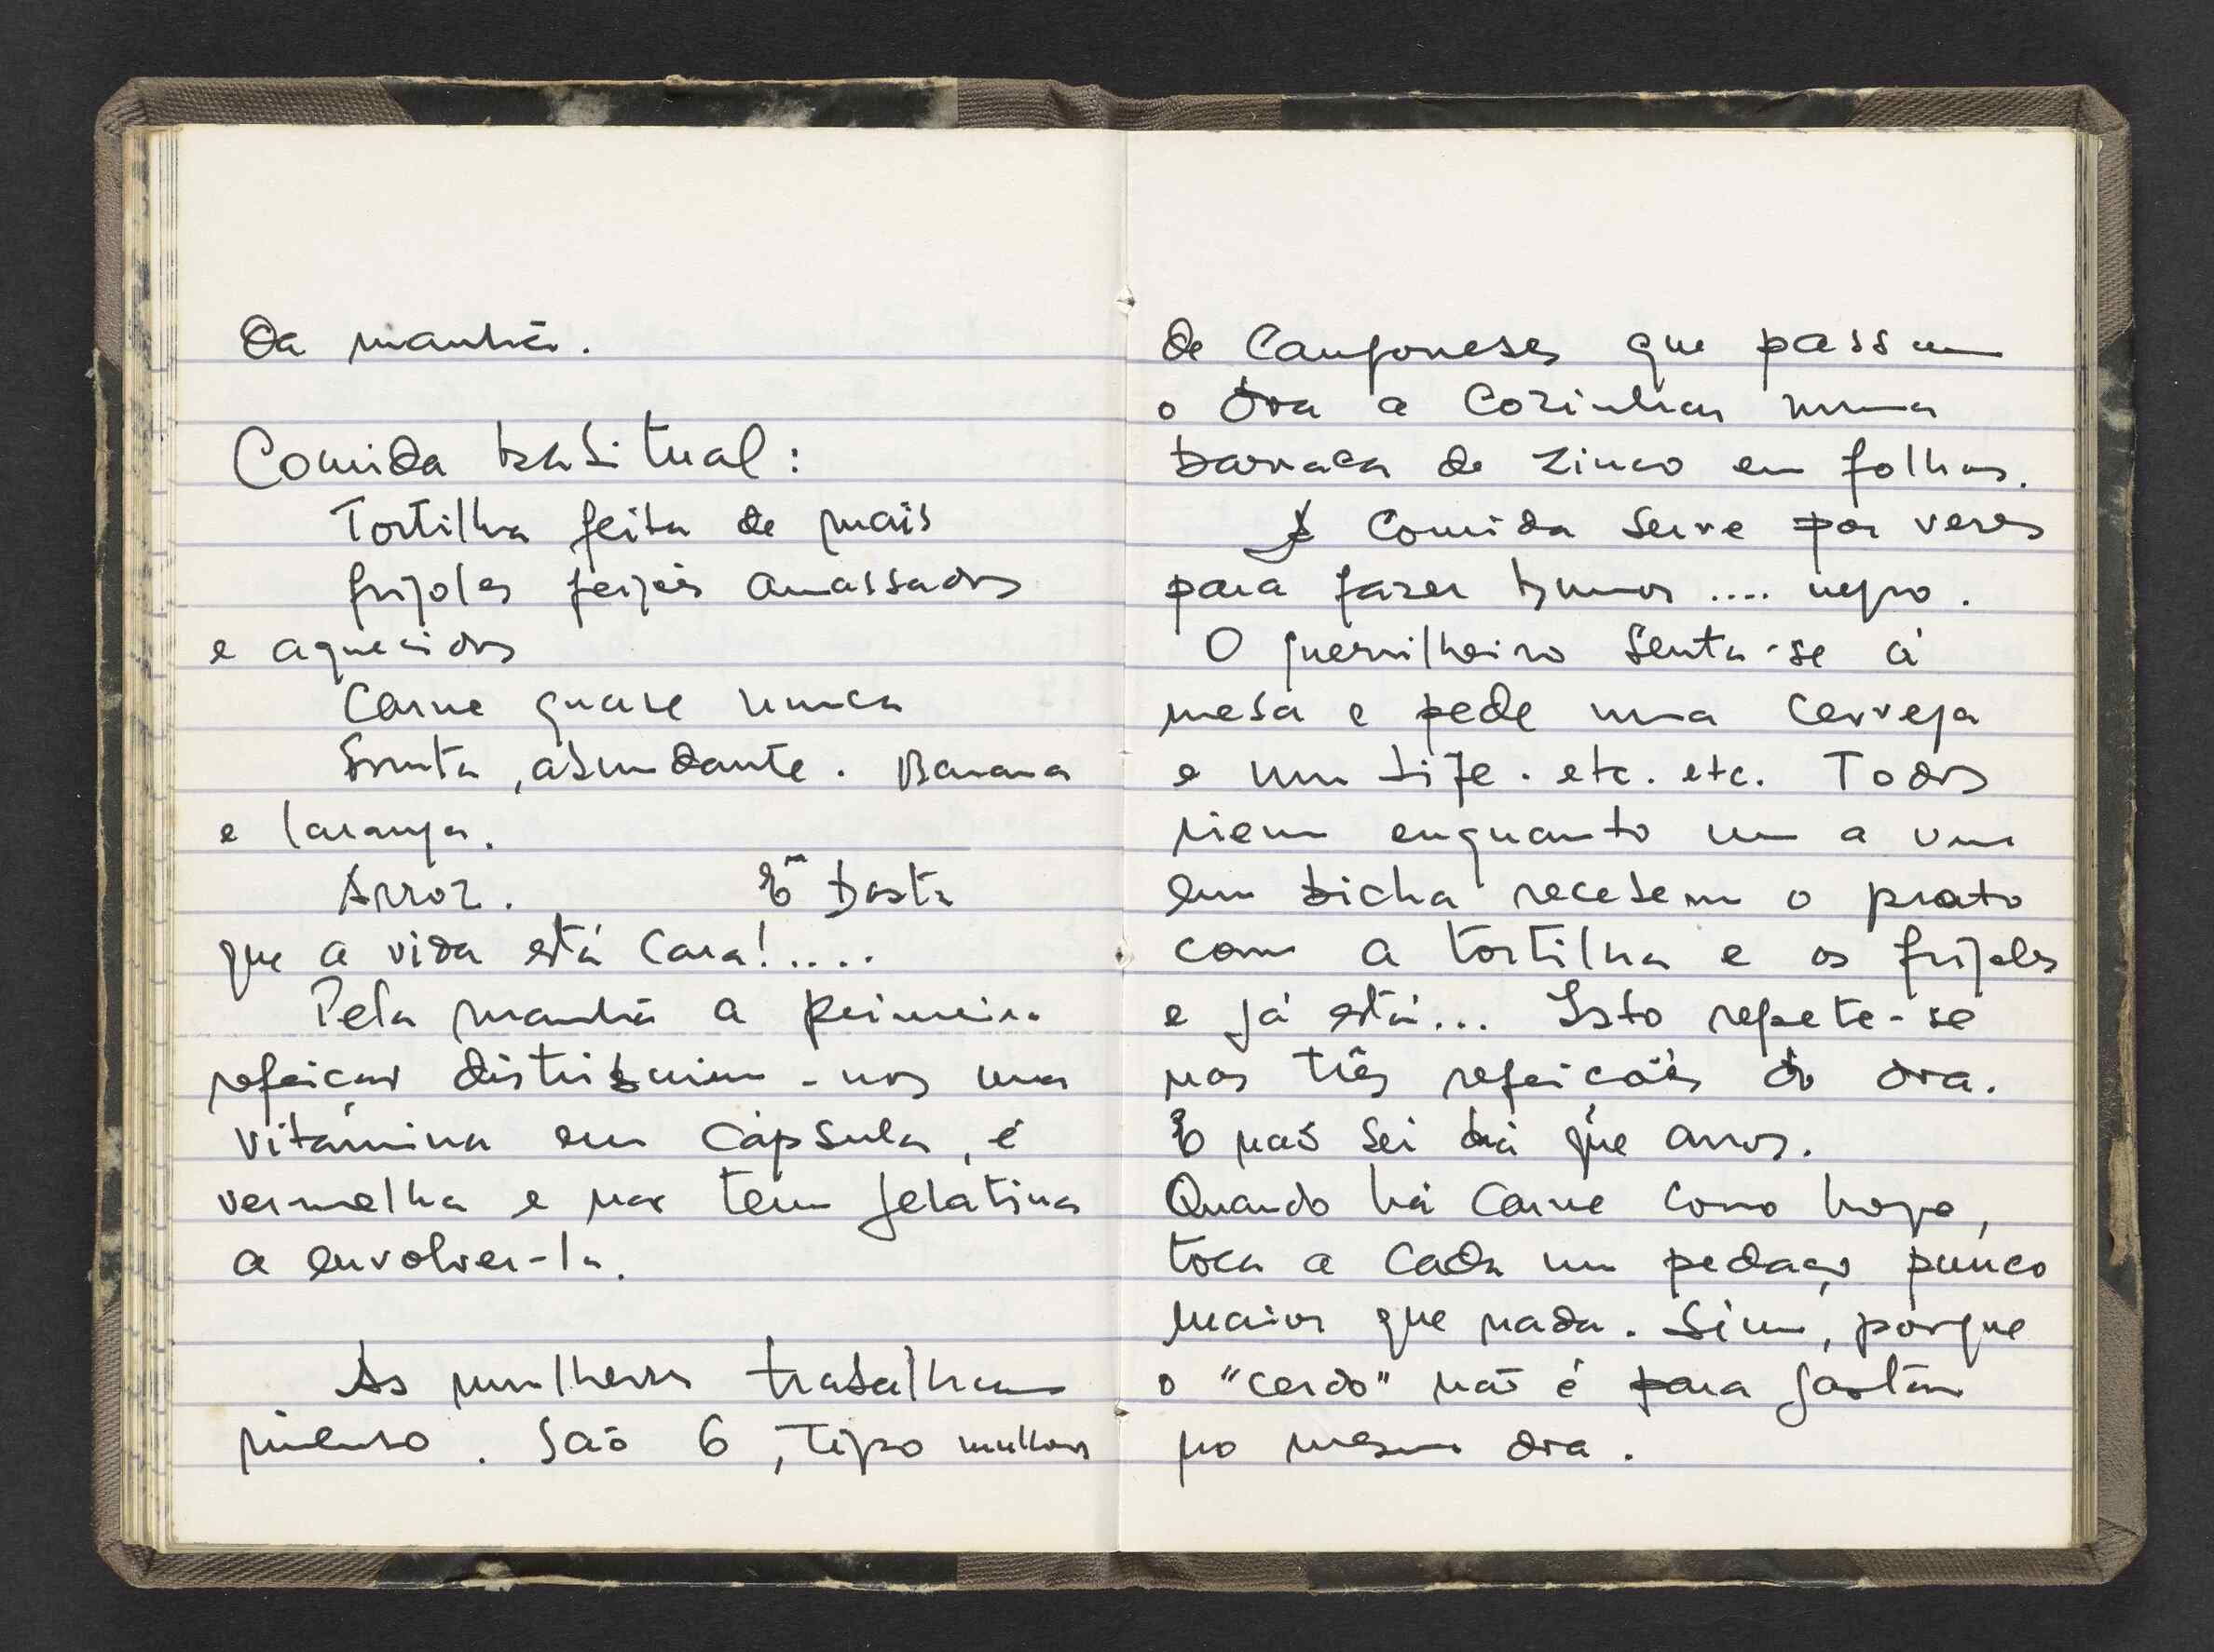 da manhã.
Comida habitual:
Tortilha feita de mais
frijoles feijões amassados
e aquecidos
Carne quase nunca
Fruta, abundante. Banana
e laranja.
Arroz. E basta
que a vida está cara!....
Pela manhã a primeira
refeição distribuiem-nos uma
vitâmina em cápsula, é
vermelha e não tem gelatina
a envolver-la.
As mulheres trabalham
imenso. São 6, tipo mulheres
de Camponeses que passam
o dia a cozinhar numa
barraca de zinco em folhas.
A Comida serve por vezes
para fazer humor .... negro.
O guerrilheiro senta-se á
mesa e pede uma cerveja
e um bife. etc. etc. Todos
riem enquanto um a um
em bicha recebem o prato
com a tortilha e os frijoles
e já está... Isto repete-se
nas três refeições do dia.
E não sei há que anos.
Quando há carne como hoje,
toca a cada um pedaço pouco
maior que nada. Sim, porque
o "cerdo" não é para gastar
no mesmo dia.